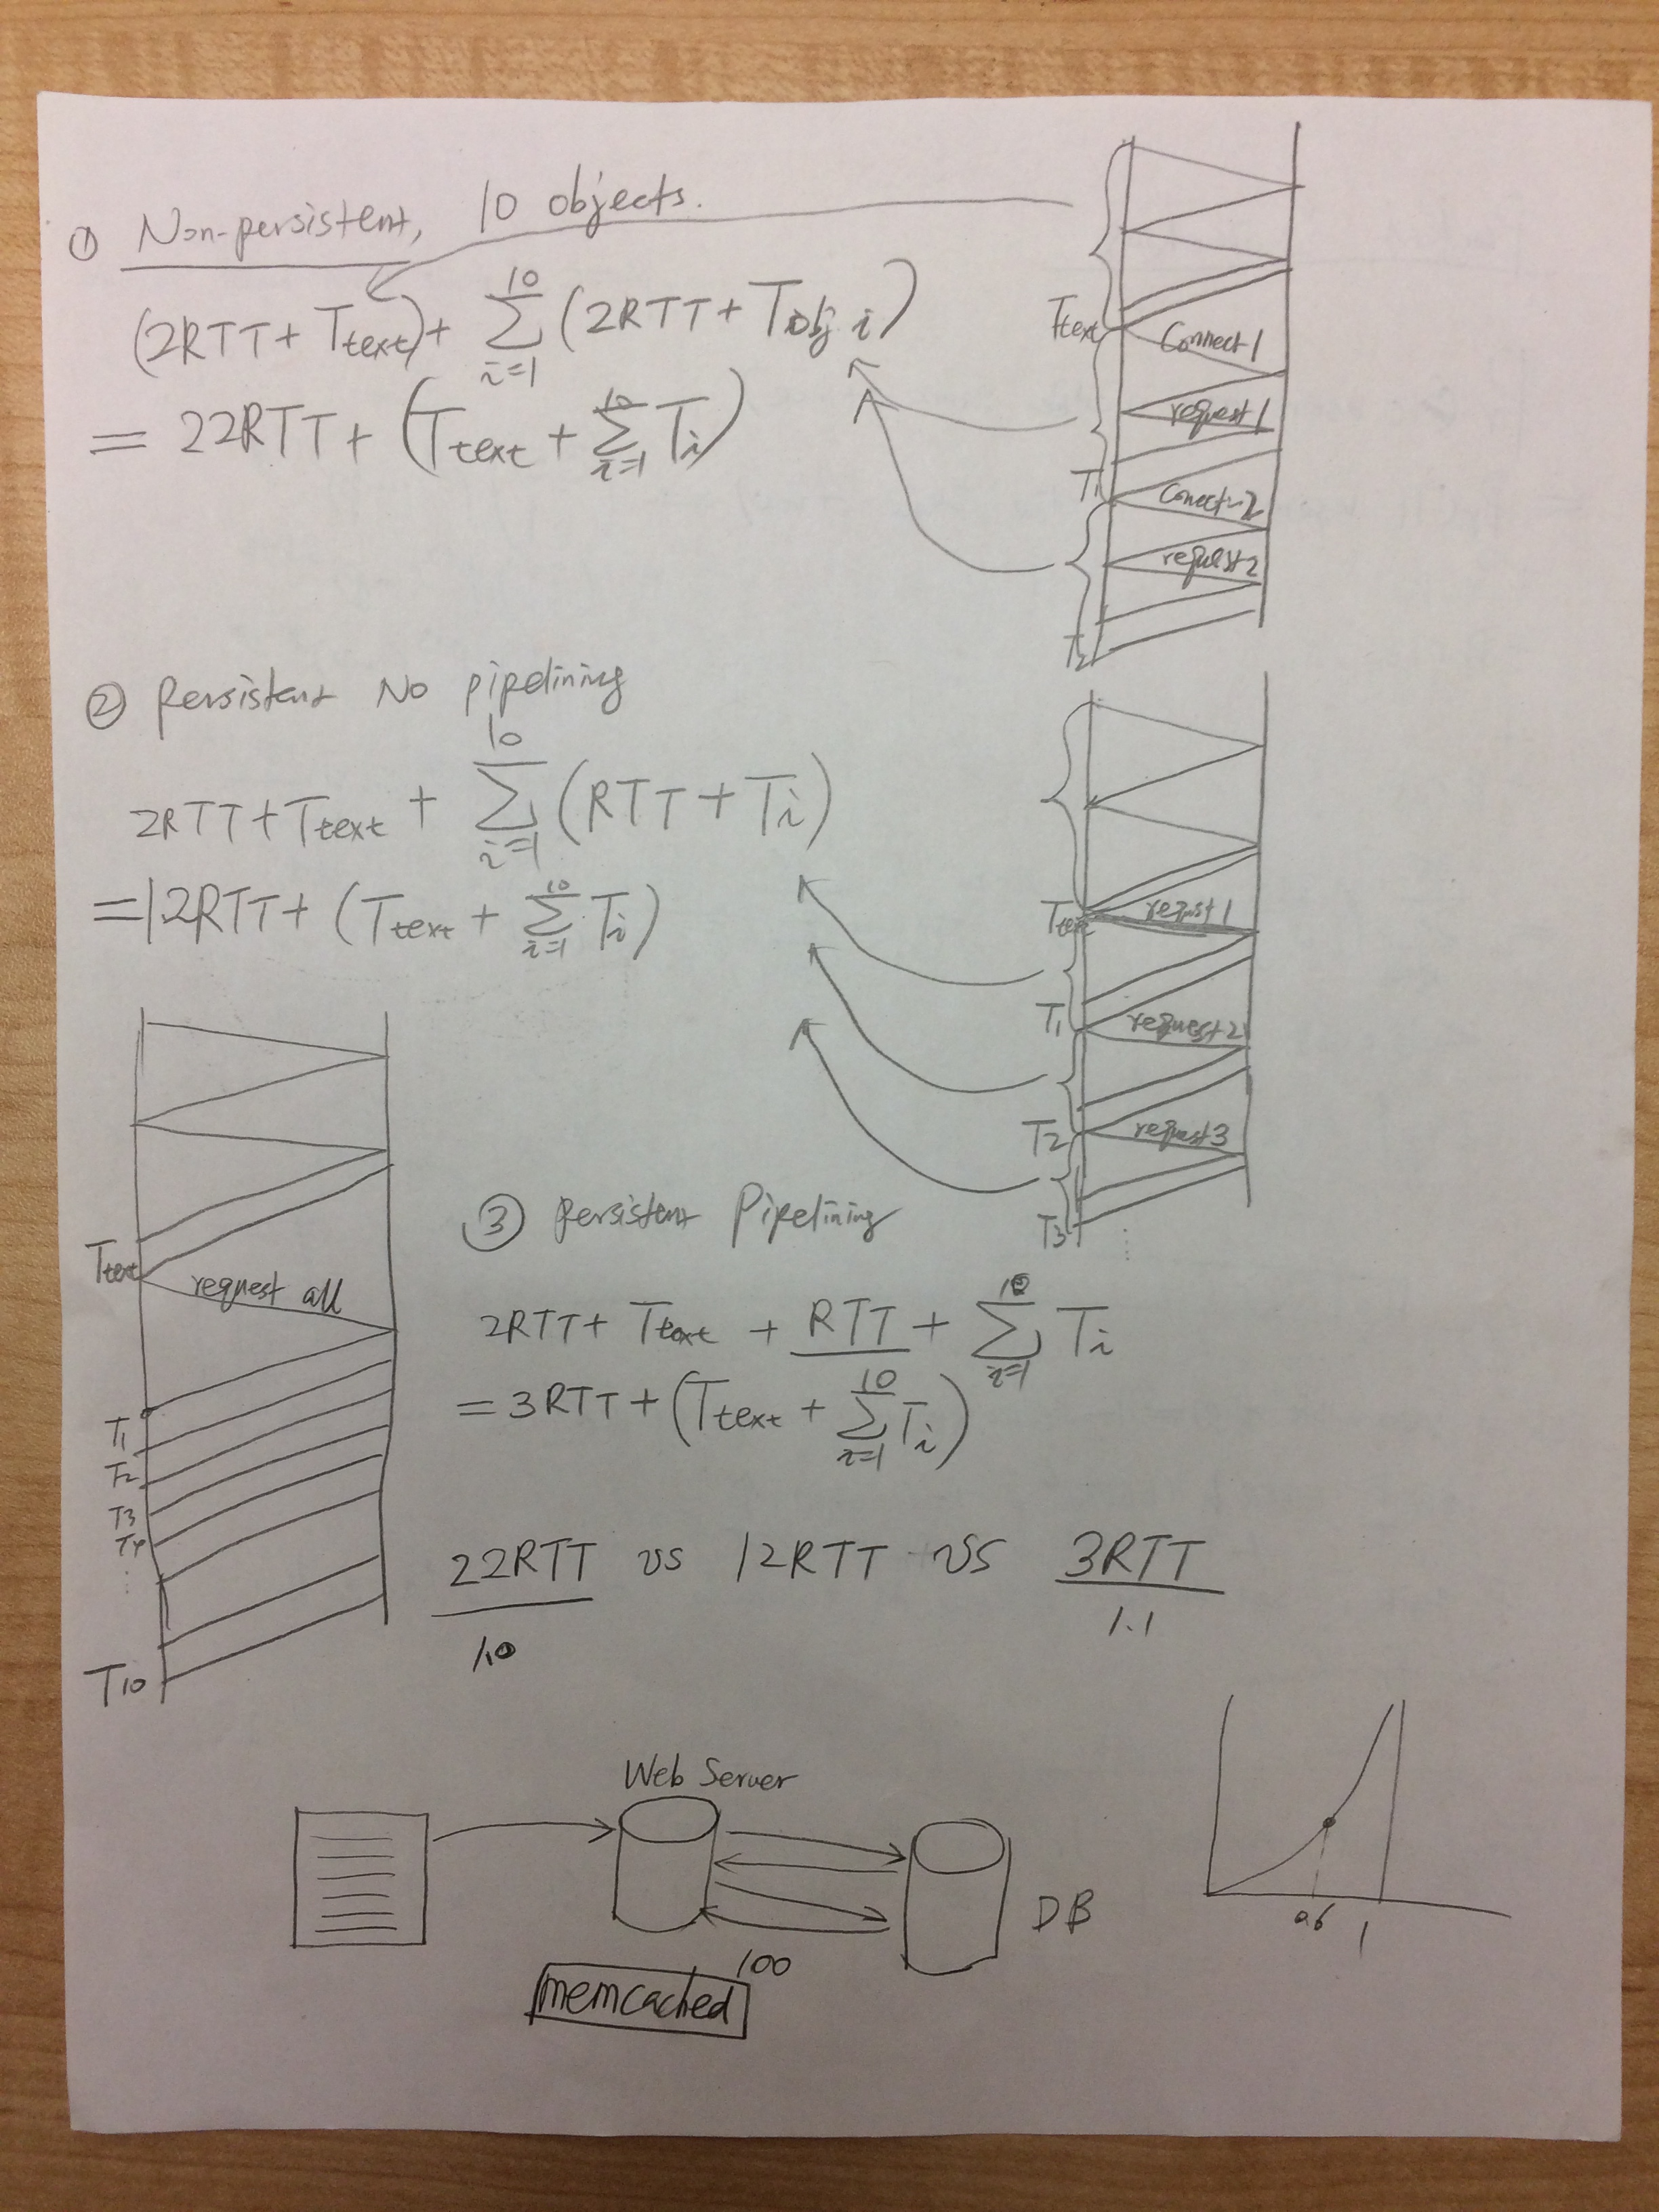 ① Non-persistent, 10 objects.
(2RTT + Ttext) + ∑_{i=1}^{10} (2RTT + Tobj i)
= 22RTT + (Ttext + ∑_{i=1}^{10} Ti)
Ttext
Connect1
request1
T1
Conect-2
request2
T2
② Persistent No pipelining
2RTT + Ttext + ∑_{i=1}^{10} (RTT + Ti)
= 12RTT + (Ttext + ∑_{i=1}^{10} Ti)
Ttext
request1
T1
request2
T2
request3
T3
Ttext
request all
T1
T2
T3
T4
T10
③ Persistent Pipelining
2RTT + Ttext + RTT + ∑_{i=1}^{10} Ti
= 3RTT + (Ttext + ∑_{i=1}^{10} Ti)
22RTT vs 12RTT vs 3RTT
1.0
1.1
Web Server
DB
100
memcached
0.6
1